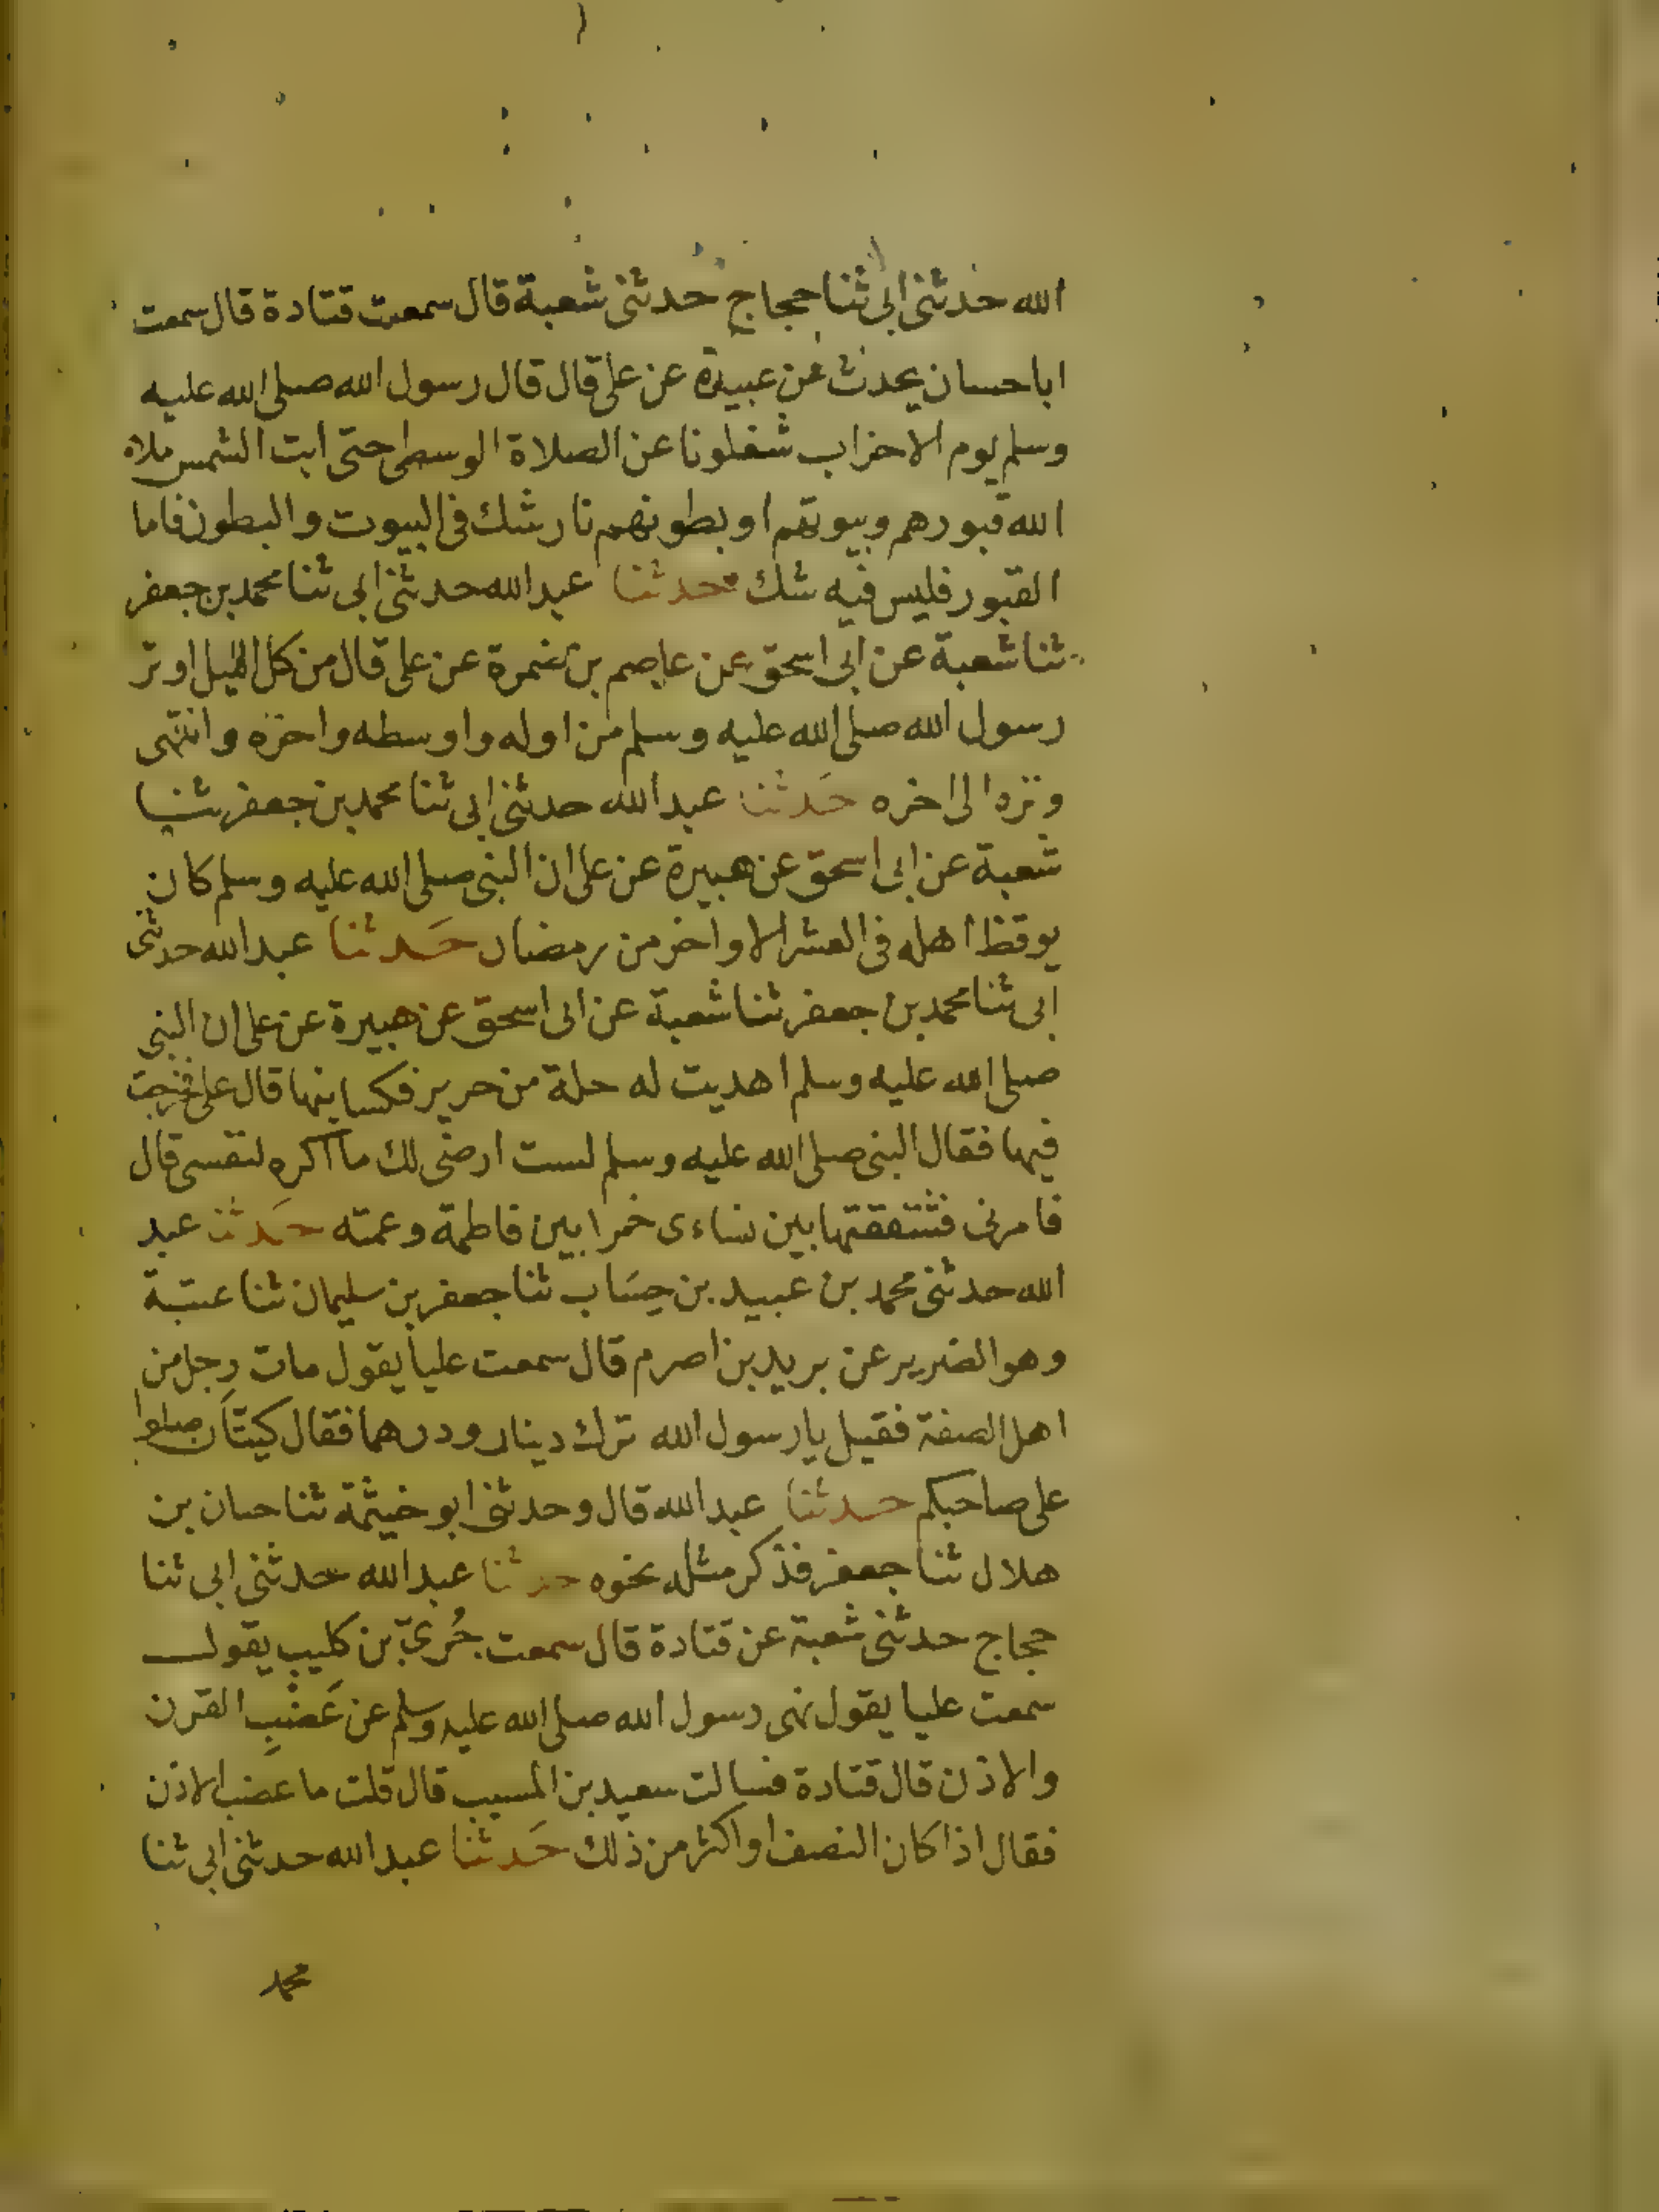 الله حدثنى ابى ثنا حجاج حدثنى شعبة قال سمعت قتادة قال سمعت
ابا حسان يحدث عن عبيدة عن على قال قال رسول الله صلى الله عليه
وسلم يوم الاحزاب شغلونا عن الصلاة الوسطى حتى ابت الشمس ملاء
الله قبورهم وبيوتهم او بطونهم نار شك فى البيوت والبطون فاما
القبور فليس فيه شك حدثنا عبد الله حدثنى ابى ثنا محمد بن جعفر
ثنا شعبة عن ابى اسحق عن عاصم بن ضمرة عن على قال من كل الليل اوتر
رسول الله صلى الله عليه وسلم من اوله واوسطه واخره وانتهى
وتره الى اخره حدثنا عبد الله حدثنى ابى ثنا محمد بن جعفر ثنا
شعبة عن ابى اسحق عن هبيرة عن على ان النبى صلى الله عليه وسلم كان
يوقظ اهله فى العشر الاواخر من رمضان حدثنا عبد الله حدثنى
ابى ثنا محمد بن جعفر ثنا شعبة عن ابى اسحق عن هبيرة عن على ان النبى
صلى الله عليه وسلم اهديت له حلة من حرير فكسانيها قال على فخرجت
فيها فقال النبى صلى الله عليه وسلم لست ارضى لك ما اكره لنفسى قال
فامرنى فشققتها بين نساءى خمرا بين فاطمة وعمته حدثنا عبد
الله حدثنى محمد بن عبيد بن حِسَاب ثنا جعفر بن سليمان ثنا عتبة
وهو الضرير عن بريد بن اصرم قال سمعت عليا يقول مات رجل من
اهل الصفة فقيل يا رسول الله ترك دينار ودرهما فقال كيتان صلوا
على صاحبكم حدثنا عبد الله قال وحدثنى ابو خيثمة ثنا حبان بن
هلال ثنا جعفر فذكر مثله نحوه حدثنا عبد الله حدثنى ابى ثنا
حجاج حدثنى شعبة عن قتادة قال سمعت جُرىّ بن كليب يقول
سمعت عليا يقول نهى رسول الله صلى الله عليه وسلم عن عَضْبِ القرن
والاذن قال قتادة فسالت سعيد بن المسيب قال قلت ما عضب الاذن
فقال اذا كان النصف او اكثر من ذلك حَدثنا عبد الله حدثنى ابى ثنا
محمد